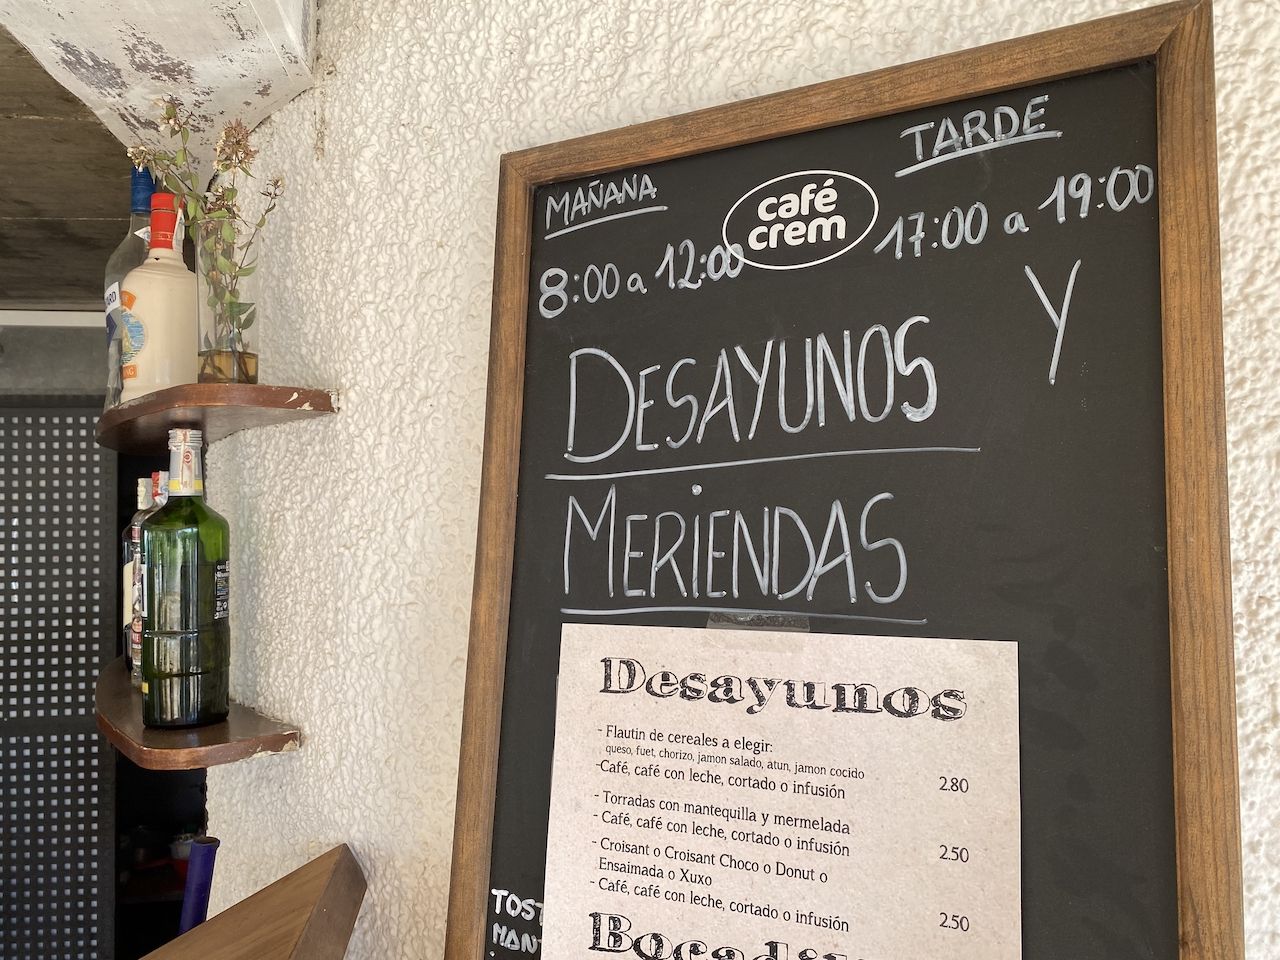 MAÑANA
TARDE
café
crem
8:00 a 12:00
17:00 a 19:00
DESAYUNOS Y
MERIENDAS
Desayunos
- Flautin de cereales a elegir:
queso, fuet, chorizo, jamon salado, atun, jamon cocido
-Café, café con leche, cortado o infusión 2.80
- Torradas con mantequilla y mermelada
- Café, café con leche, cortado o infusión 2.50
- Croisant o Croisant Choco o Donut o
Ensaimada o Xuxo
- Café, café con leche, cortado o infusión 2.50
TOST
MANT